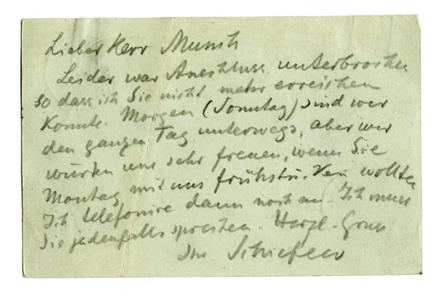 Lieber Herr Munch
Leider war Anschluss unterbrochen
so dass ich Sie nicht mehr erreichen
konnte. Morgen (Sonntag) sind wir
den ganzen Tag unterwegs, aber wir
würden uns sehr freuen, wenn Sie
Montag mit uns frühstücken wollten
Ich telefonire dann noch an. Ich muss
Sie jedenfalls sprechen. Herzl. Gruss
Ihr Schiefler